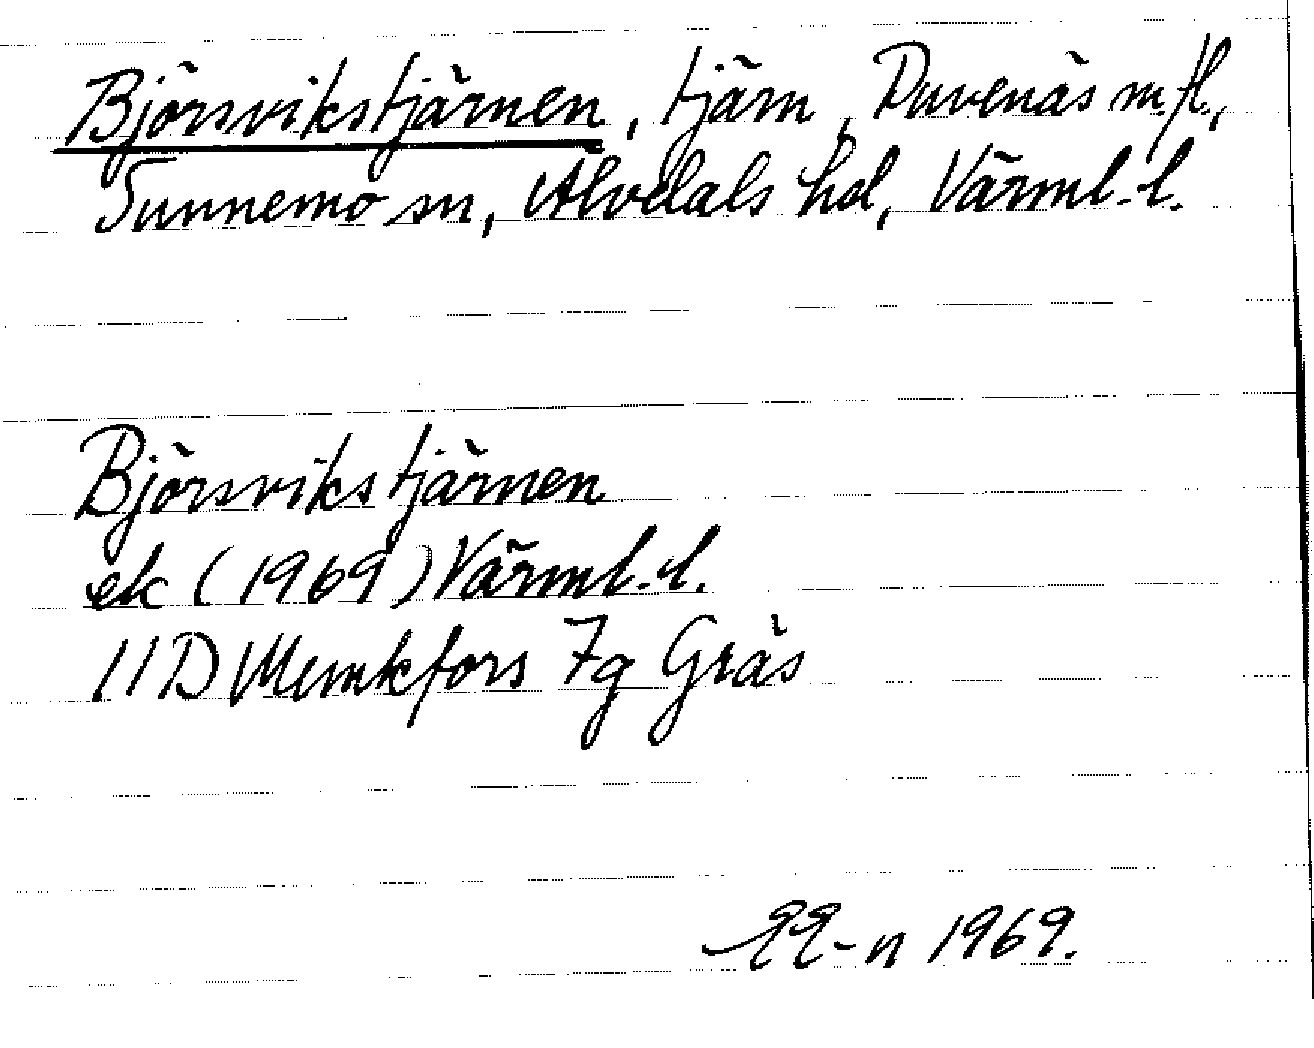 Björsvikstjärnen, tjärn, Duvenäs m.fl.,
Sunnemo sn, Älvdals hd, Värml. l.
Björsvikstjärnen
ek (1969) Värml. l.
11D Munkfors 7g Gräs
1969.